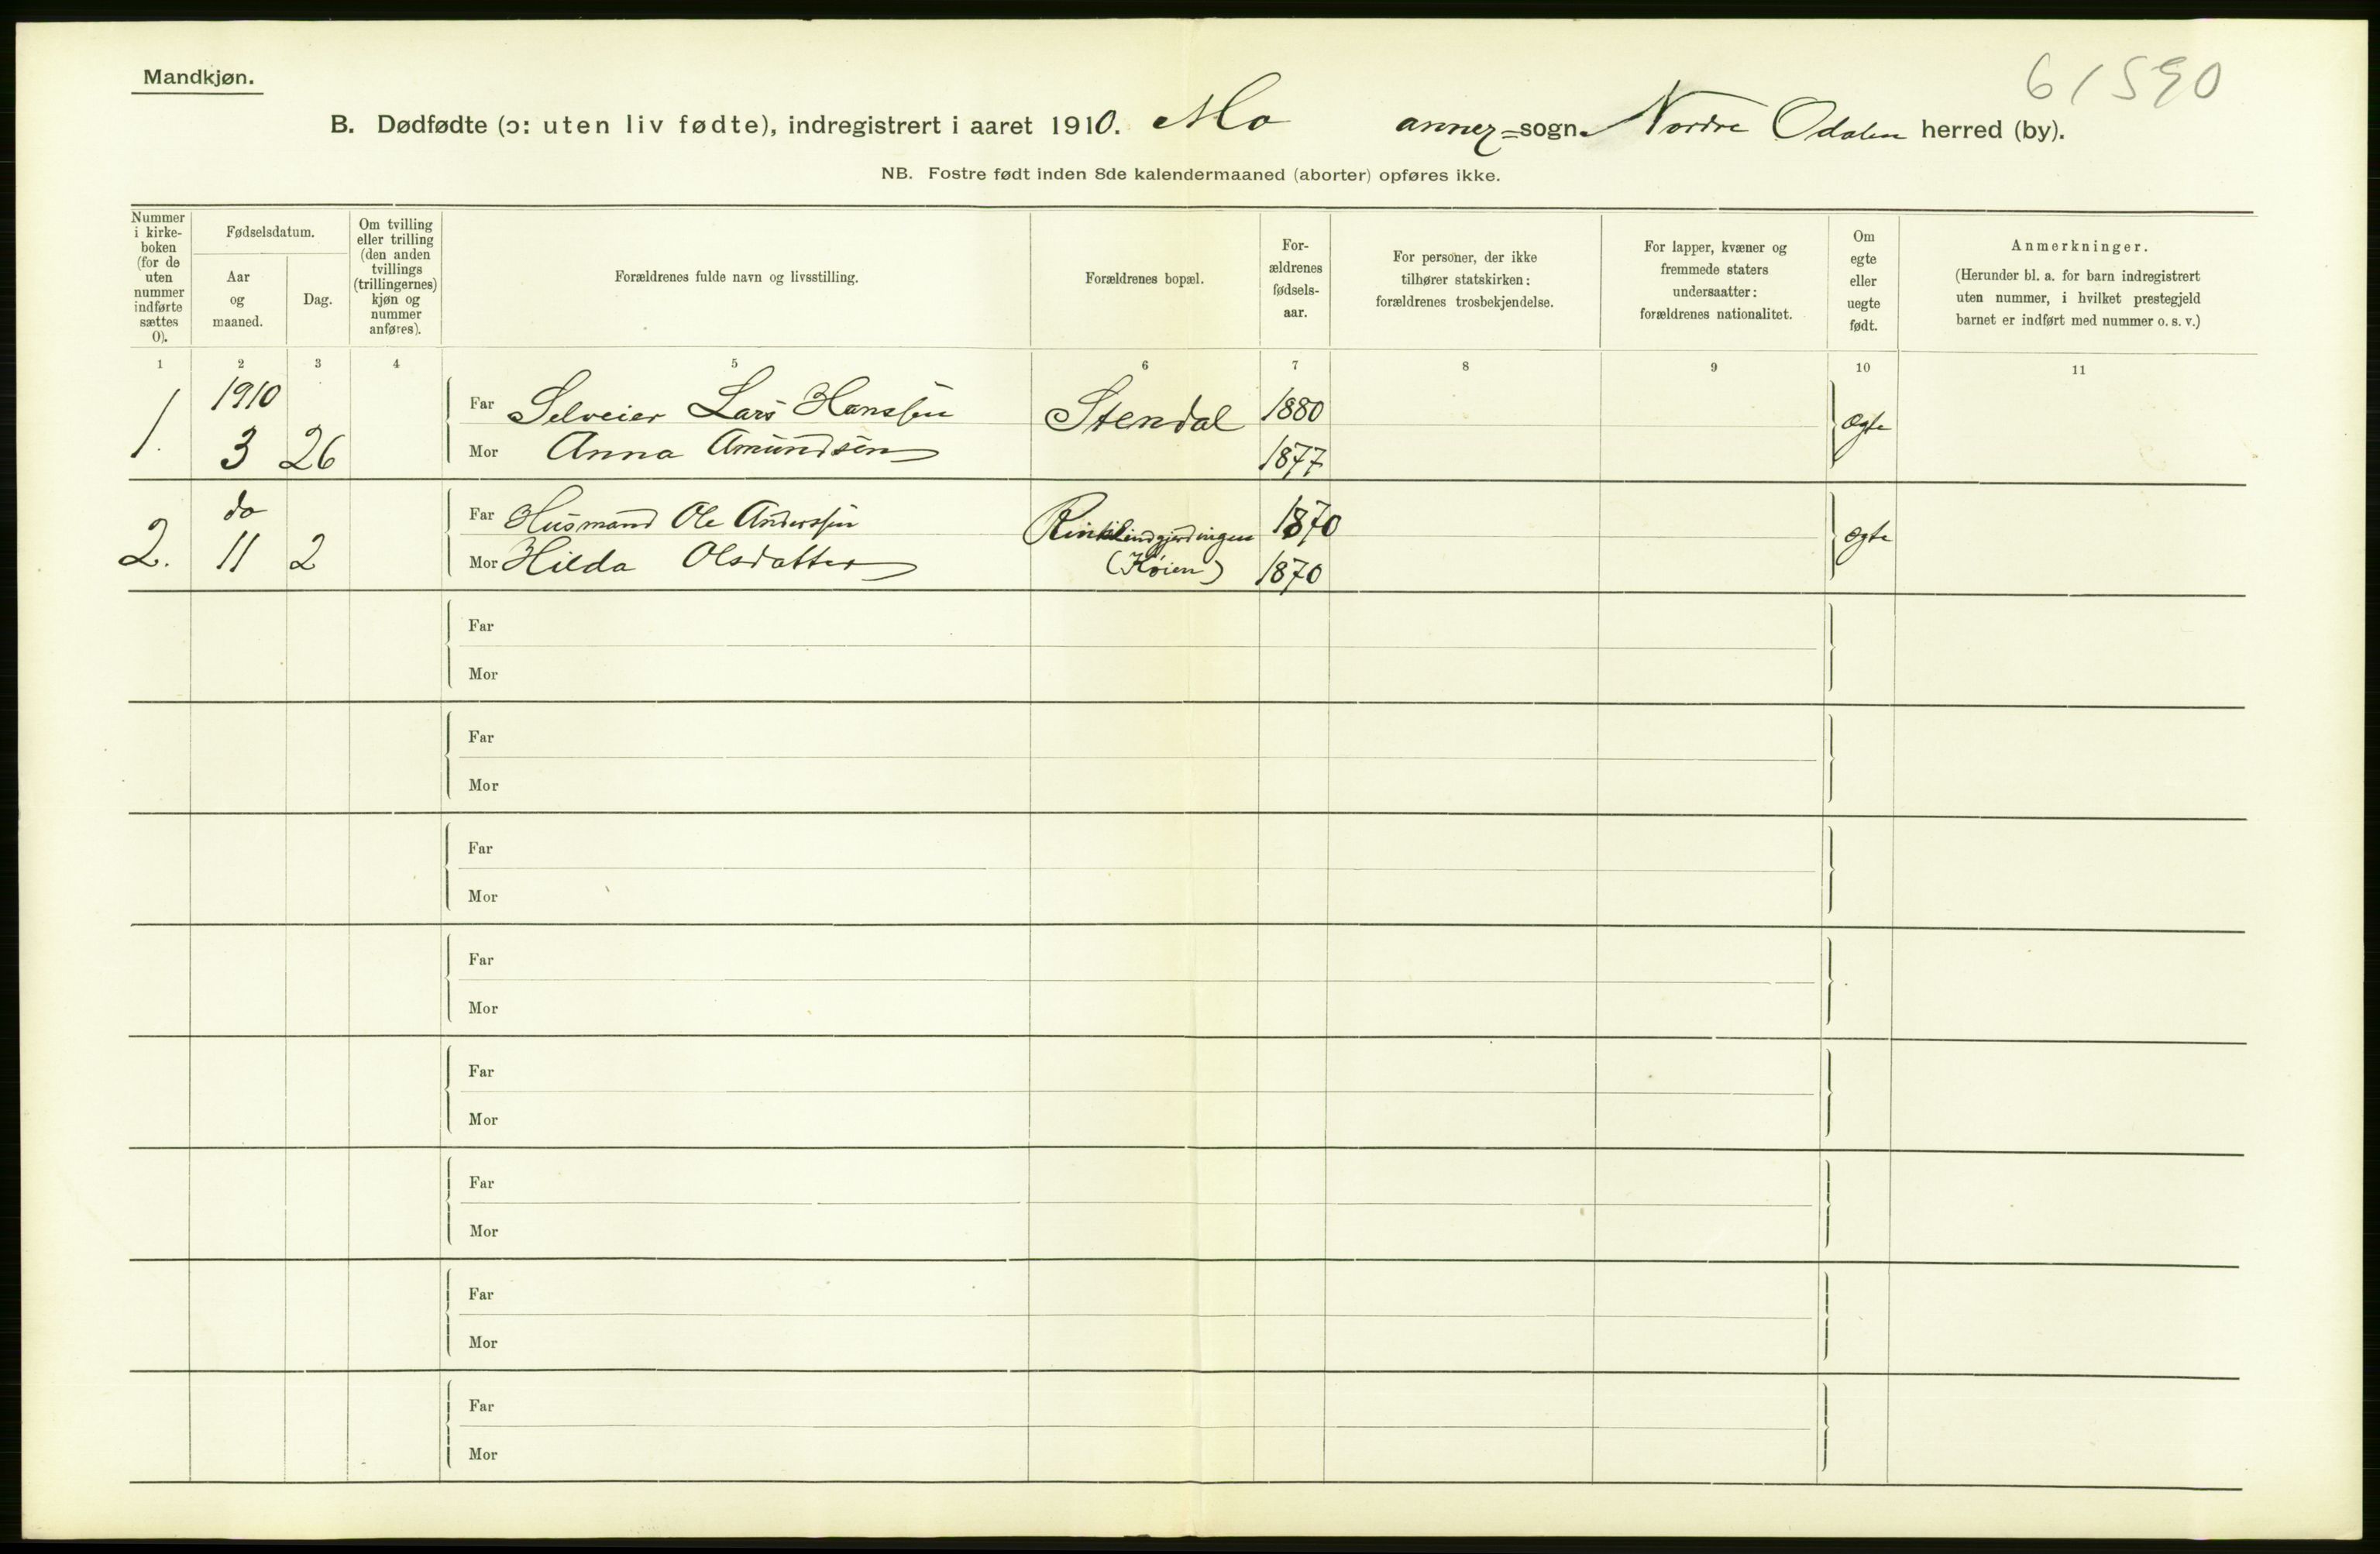 61590
Mandkjøn.
B. Dødfødte (ɔ: uten liv fødte), indregistrert i aaret 1910. Mo annex-sogn Nordre Odalen herred (by).
NB. Fostre født inden 8de kalendermaaned (aborter) opføres ikke.
Nummer i kirke-boken (for de uten nummer indførte sættes 0).
Fødselsdatum.
Aar og maaned.
Dag.
Om tvilling eller trilling (den anden tvillings (trillingernes) kjøn og nummer anføres).
Forældrenes fulde navn og livsstilling.
Forældrenes bopæl.
For-ældrenes fødsels-aar.
For personer, der ikke tilhører statskirken: forældrenes trosbekjendelse.
For lapper, kvæner og fremmede staters undersaatter: forældrenes nationalitet.
Om egte eller uegte født.
Anmerkninger.
(Herunder bl. a. for barn indregistrert uten nummer, i hvilket prestegjeld barnet er indført med nummer o. s. v.)
1 2 3 4 5 6 7 8 9 10 11
1. 1910 3 26 Far Selveier Lars Hanssen Stendal 1880 Ægte
Mor Anna Amundsen 1877
2. do 11 2 Far Husmand Ole Anderssen 1870 Ægte
Mor Hilda Olsdatter (Køien) 1870
Far
Mor
Far
Mor
Far
Mor
Far
Mor
Far
Mor
Far
Mor
Far
Mor
Far
Mor